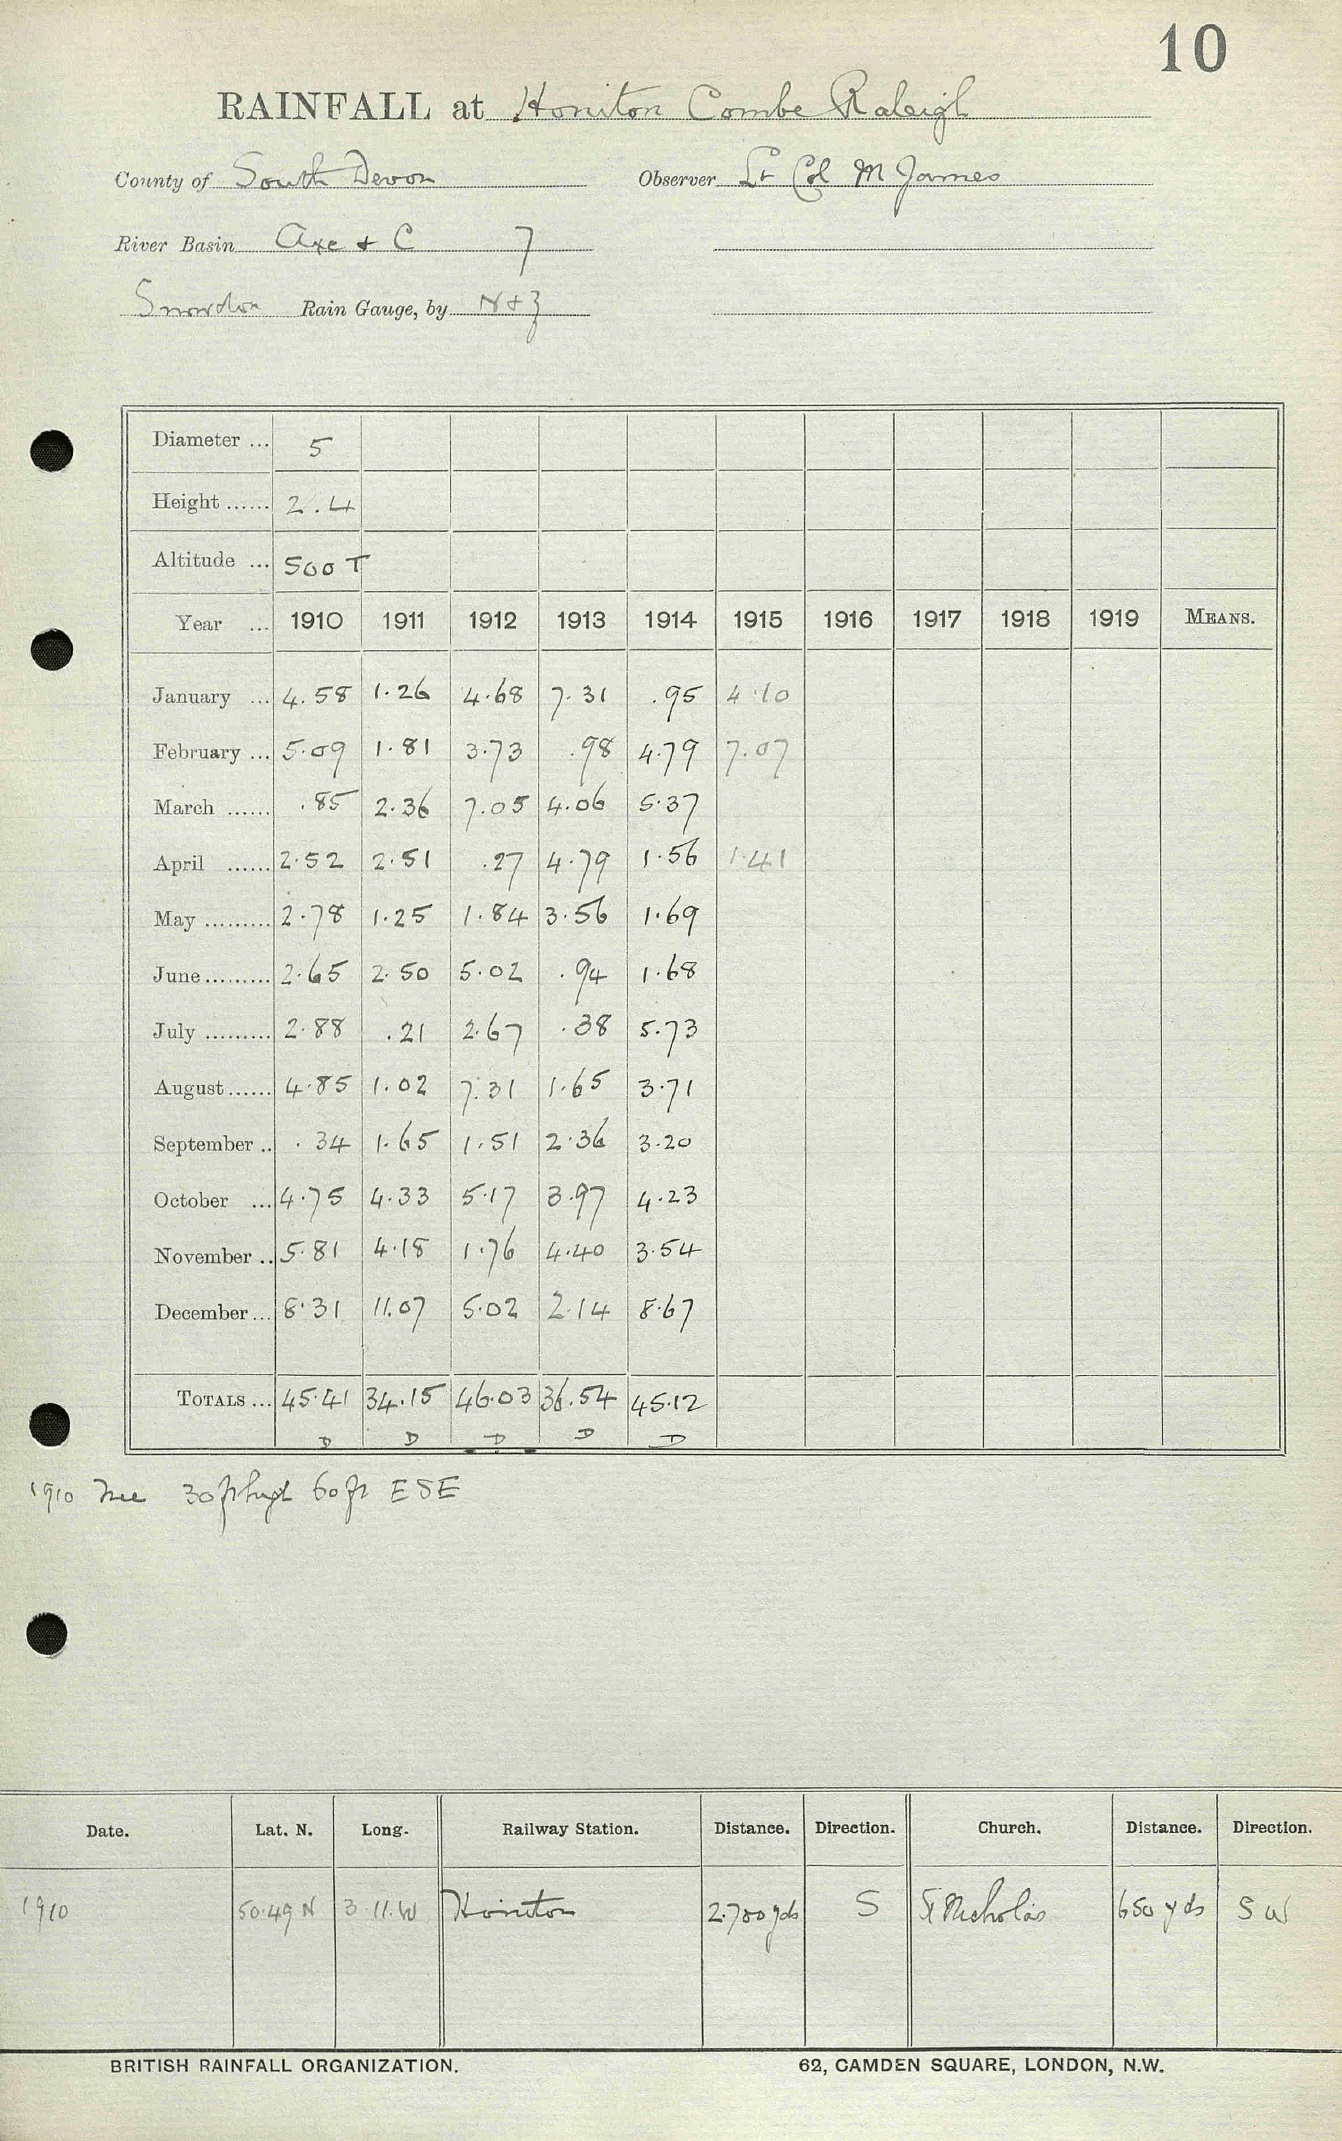 10
RAINFALL at Honiton Combe Raleigh
County of South Devon Observer Lt Col M James
River Basin Axe + C 7
Snowdon Rain Gauge, by N+Z
Diameter ... 5
Height ...... 2.4
Altitude ... 500 T
Year ... 1910 1911 1912 1913 1914 1915 1916 1917 1918 1919 MEANS.
January ... 4.58 1.26 4.68 7.31 .95 4.10
February ... 5.09 1.81 3.73 .98 4.79 7.07
March ...... .85 2.36 7.05 4.06 5.37
April ...... 2.52 2.51 .27 4.79 1.56 1.41
May ......... 2.78 1.25 1.84 3.56 1.69
June ......... 2.65 2.50 5.02 .94 1.68
July ......... 2.88 .21 2.67 .38 5.73
August ...... 4.85 1.02 7.31 1.65 3.71
September .. .34 1.65 1.51 2.36 3.20
October ... 4.75 4.33 5.17 3.97 4.23
November .. 5.81 4.18 1.76 4.40 3.54
December ... 8.31 11.07 5.02 2.14 8.67
TOTALS ... 45.41 34.15 46.03 36.54 45.12
D D D D D
1910 Tree 30ft high 60ft ESE
Date. Lat. N. Long. Railway Station. Distance. Direction. Church. Distance. Direction.
1910 50.49 N 3.11.W Honiton 2.700 yds S St Nicholas 650 yds S W
BRITISH RAINFALL ORGANIZATION. 62, CAMDEN SQUARE, LONDON, N.W.